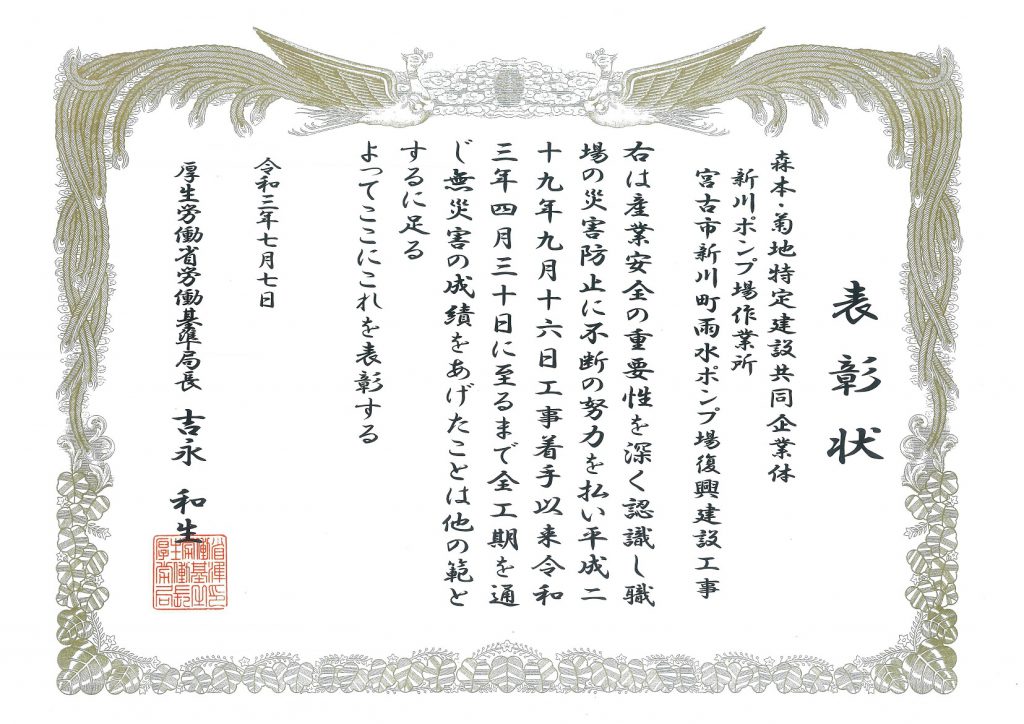 表彰状
森本・菊地特定建設共同企業体
新川ポンプ場作業所
宮古市新川町雨水ポンプ場復興建設工事
右は産業安全の重要性を深く認識し職
場の災害防止に不断の努力を払い平成二
十九年九月十六日工事着手以来令和
三年四月三十日に至るまで全工期を通
じ無災害の成績をあげたことは他の範と
するに足る
よってここにこれを表彰する
令和三年七月七日
厚生労働省労働基準局長 吉永 和生